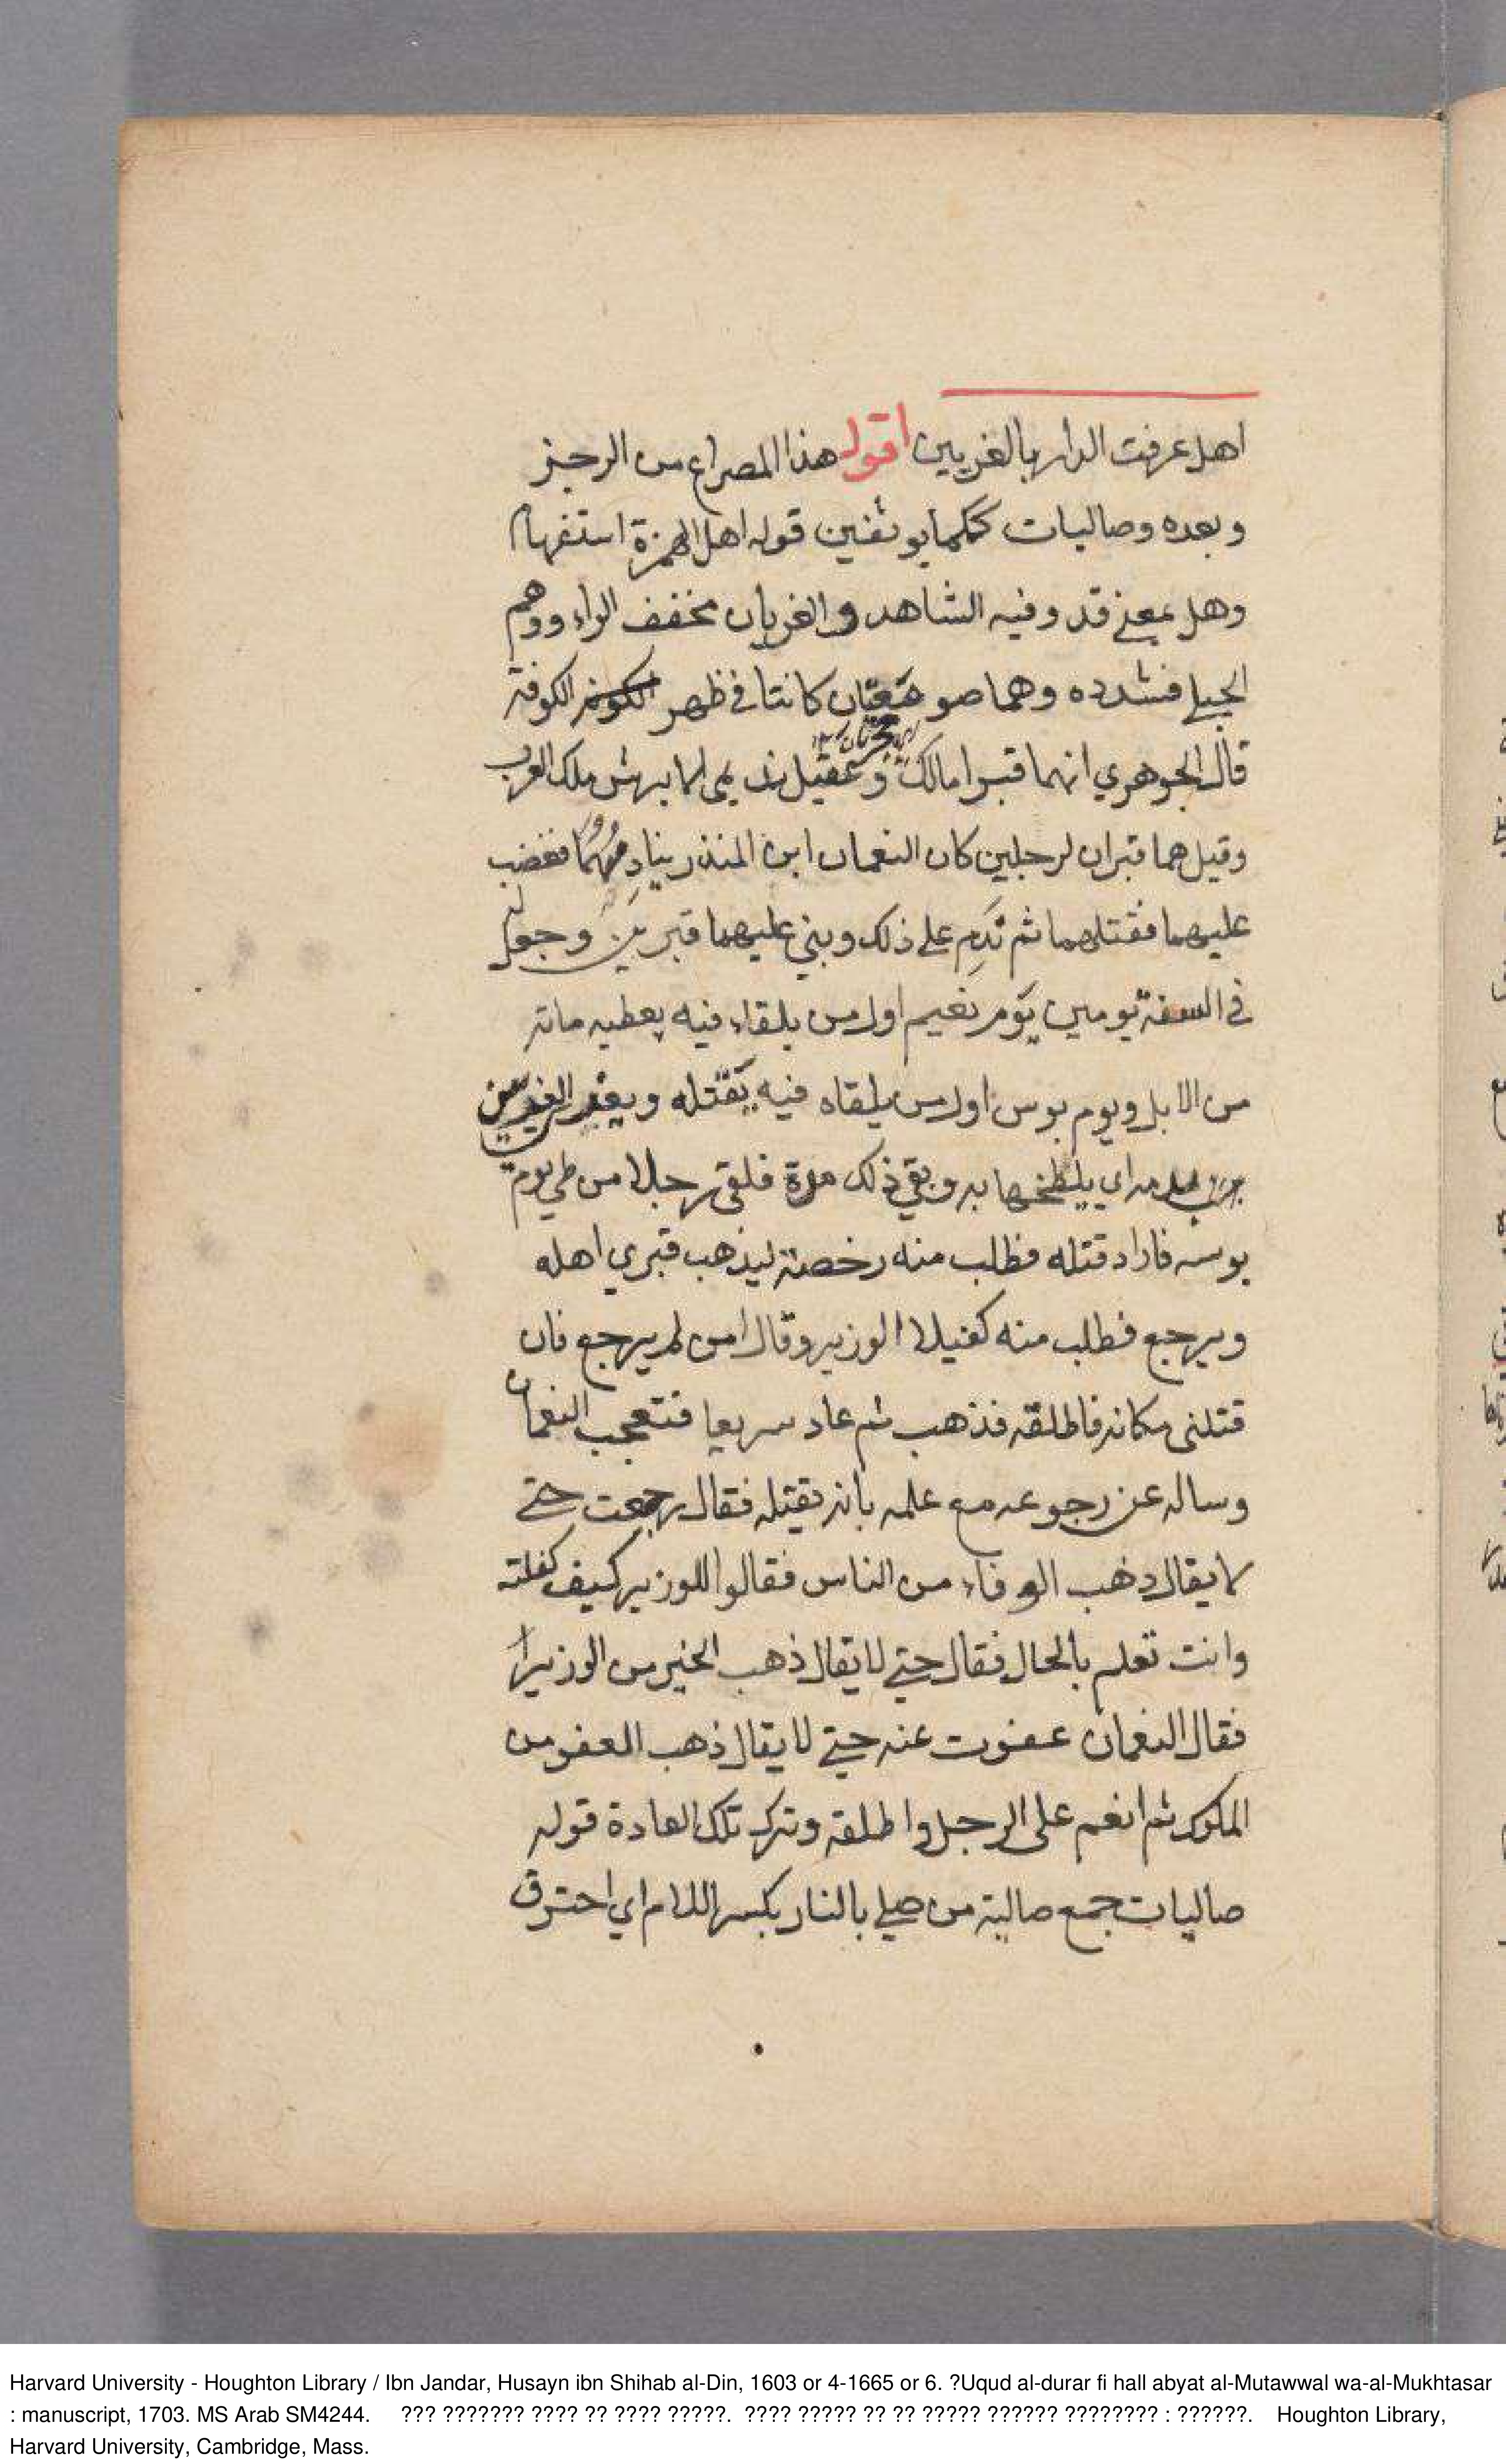 اهل عرفت الدار بالغريين اقول هذا المصراع من الرجز
وبعده وصاليات ككما يوثفين قوله اهل الهمزة استفهام
وهل بمعنى قد وفيه الشاهد والغريان مخفف الراء ووهم
الجبلي فشدده وهما صومعتان كانتا في ظهر الكوفة
قال الجوهري انهما قبرا مالك وعقيل نديمي الابرش ملك العرب
وقيل هما قبران لرجلين كان النعمان ابن المنذر ينادمهما فغضب
عليهما فقتلهما ثم ندم على ذلك وبنى عليهما قبرين وجعل له
في السنة يومين يوم نعيم اول من يلقاه فيه يعطيه مائة
من الابل ويوم بوس اول من يلقاه فيه يقتله ويغري الغريين
بدمه اي يلطخها به وبقي ذلك مدة فلقى رجلا من طي يوم
بوسه فاراد قتله فطلب منه رخصة ليذهب اهله
ويرجع فطلب منه كفيلا الوزير وقال لم يرجع فان
قتلني مكانه فاطلقه فذهب ثم عاد سريعا فتعجب النعمان
وساله عن رجوعه مع علمه بانه يقتله فقال رجعت حتى
لا يقال ذهب الوفاء من الناس فقالوا للوزير كيف كفلته
وانت تعلم بالحال فقال حتى لا يقال ذهب الخير من الوزيرا
فقال النعمان عفوت عنه حتى لا يقال ذهب العفو من
الملوك ثم انعم على الرجل واطلقه وترك تلك العادة قوله
صاليات جمع صالية من صلي بالنار بكسر اللام اي احترق
Harvard University - Houghton Library / Ibn Jandar, Husayn ibn Shihab al-Din, 1603 or 4-1665 or 6. ?Uqud al-durar fi hall abyat al-Mutawwal wa-al-Mukhtasar
: manuscript, 1703. MS Arab SM4244. ??? ??????? ???? ?? ???? ?????. ???? ????? ?? ?? ????? ?????? ???????? : ??????. Houghton Library,
Harvard University, Cambridge, Mass.